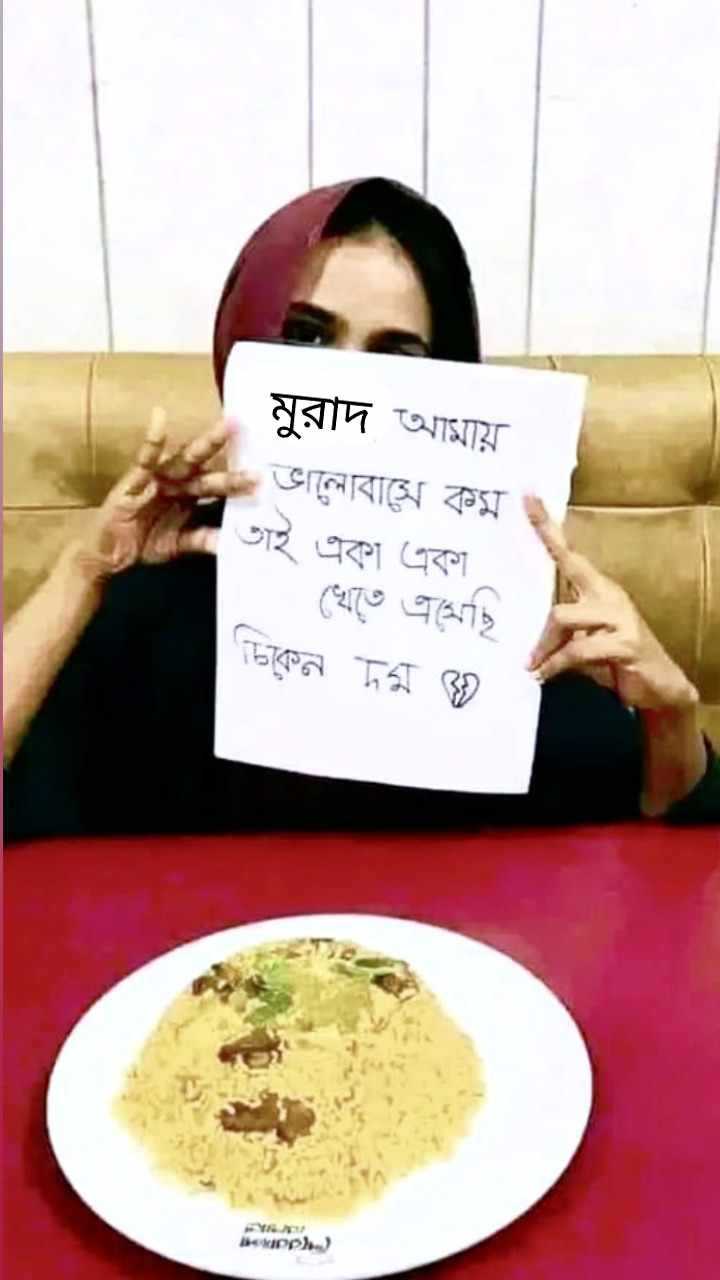 মুরাদ আমায়
ভালোবাসে কম
তাই একা একা
খেতে এসেছি
চিকেন দম